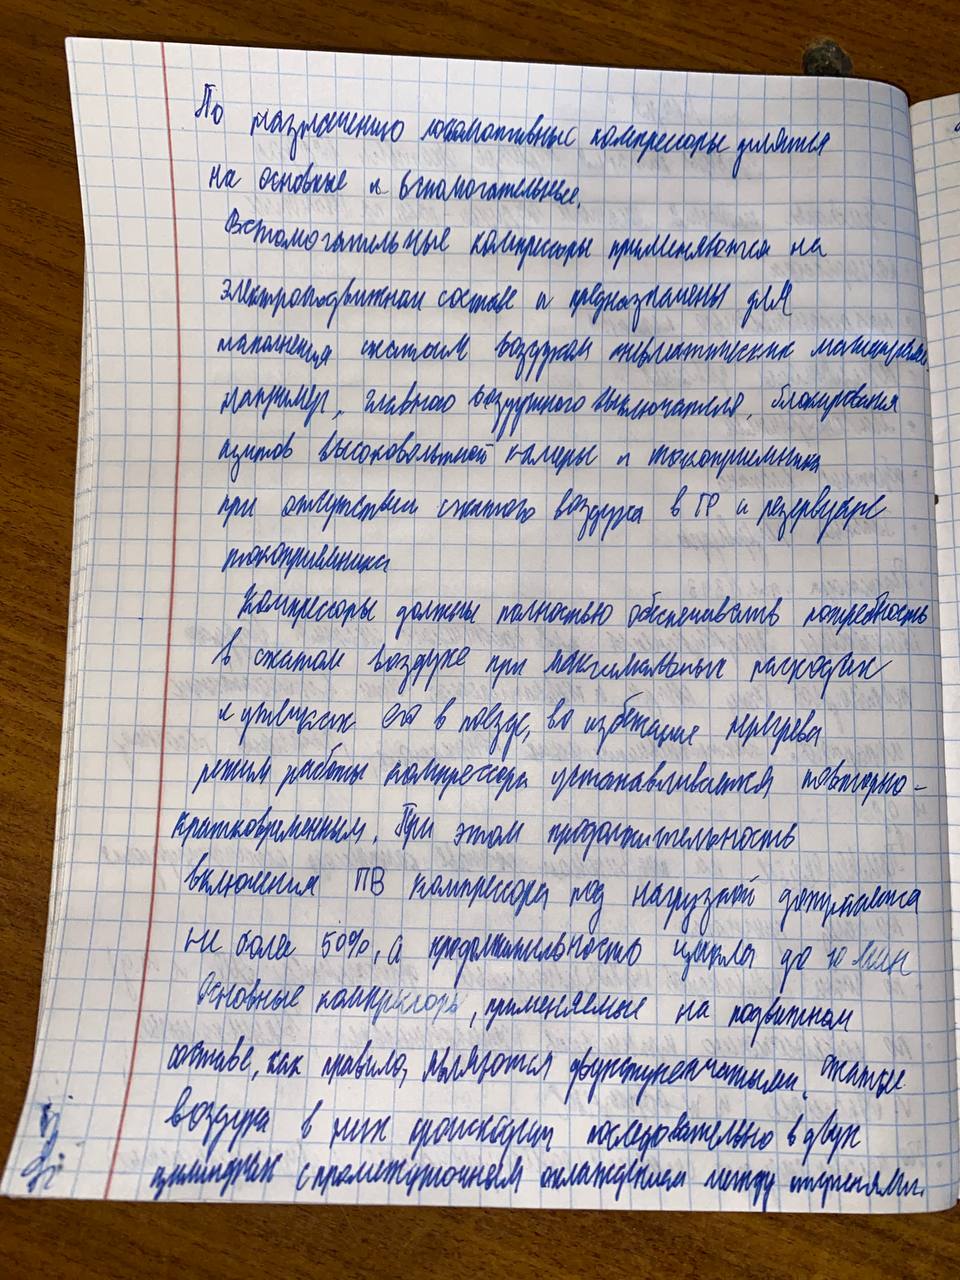 По назначению локомотивные компрессоры делятся
на основные и вспомогательные.
Вспомогательные компрессоры применяются на
электроподвижном составе и предназначены для
наполнения сжатым воздухом пневматических магистралей
например, главного воздушного выключателя, блокирования
щитов высоковольтной камеры и токоприемника
при отсутствии сжатого воздуха в ГР и резервуаре
токоприемника
Компрессоры должны полностью обеспечивать потребность
в сжатом воздухе при максимальных расходах
и утечках его в поезде, во избежание перегрева
режим работы компрессора устанавливается повторно-
кратковременным. При этом продолжительность
включения ПВ компрессора под нагрузкой допускается
не более 50%, а продолжительность цикла до 10 мин
Основные компрессоры, применяемые на подвижном
составе, как правило, являются двухступенчатыми. Сжатие
воздуха в них происходит последовательно в двух
цилиндрах с промежуточным охлаждением между ступенями.